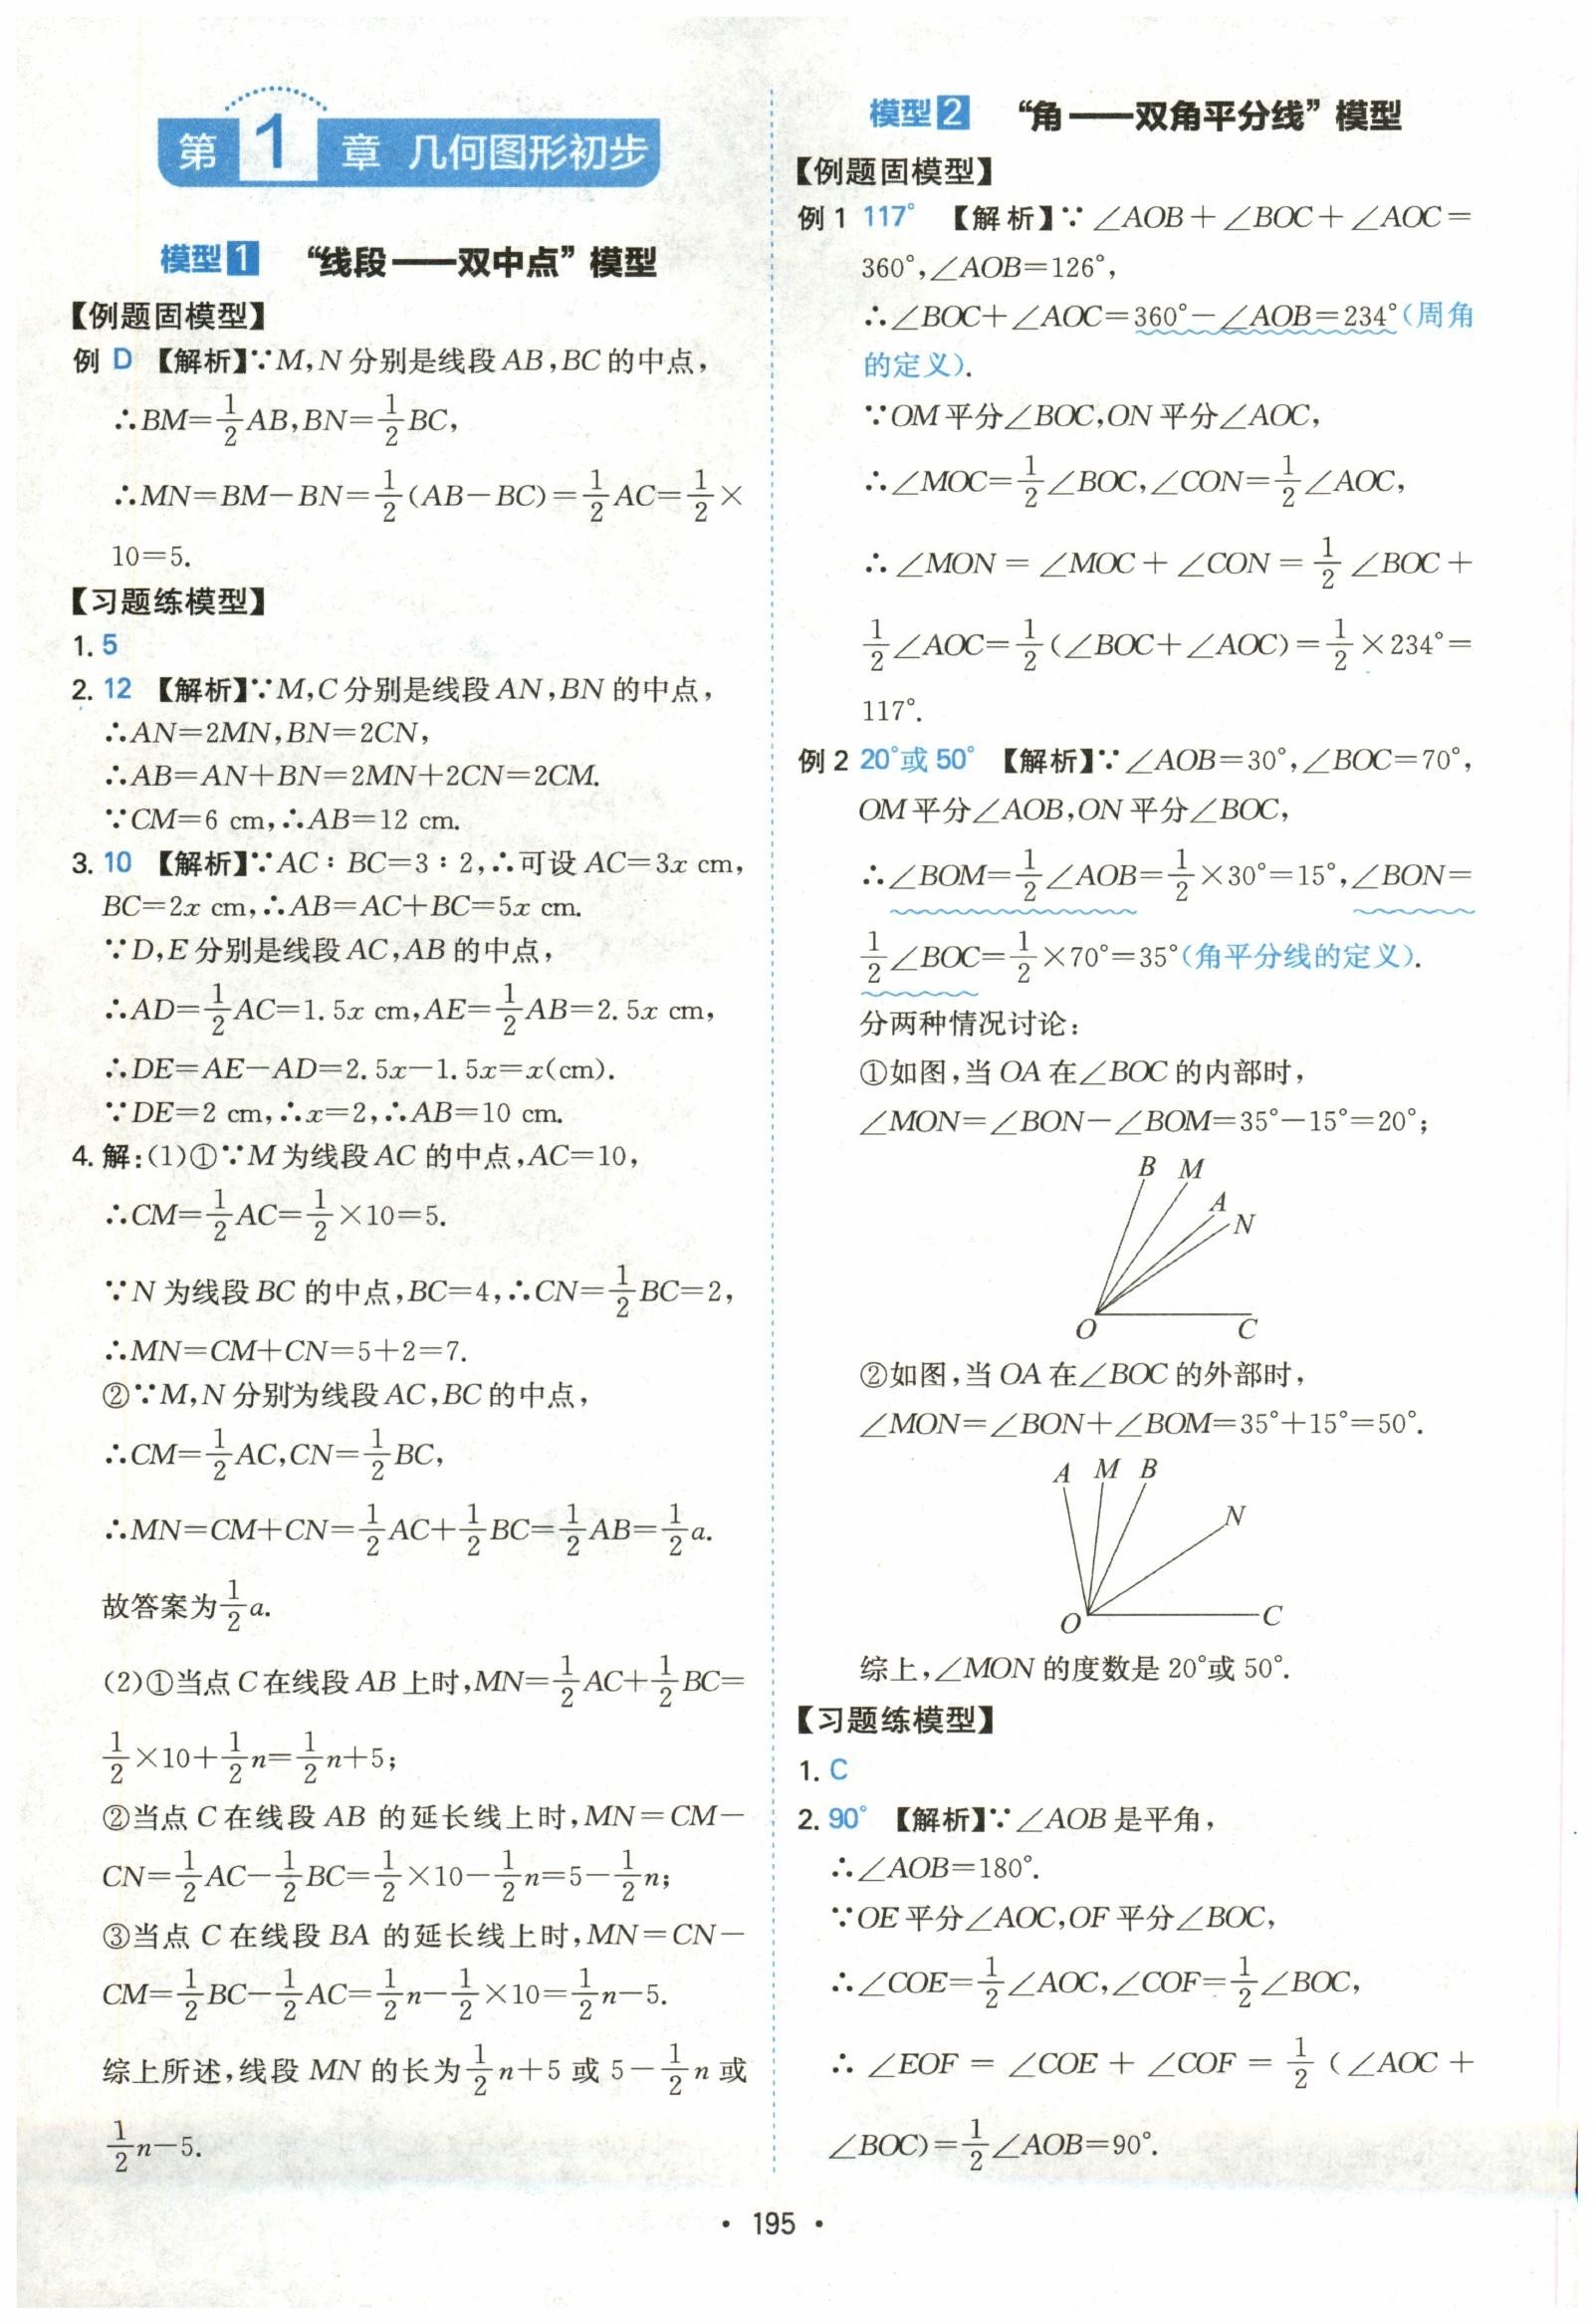 第1章 几何图形初步
模型1 “线段——双中点”模型
【例题固模型】
例 D 【解析】∵M,N分别是线段AB,BC的中点,
∴BM=1/2AB,BN=1/2BC,
∴MN=BM-BN=1/2(AB-BC)=1/2AC=1/2×
10=5.
【习题练模型】
1. 5
2. 12 【解析】∵M,C分别是线段AN,BN的中点,
∴AN=2MN,BN=2CN,
∴AB=AN+BN=2MN+2CN=2CM.
∵CM=6 cm,∴AB=12 cm.
3. 10 【解析】∵AC∶BC=3∶2,∴可设AC=3x cm,
BC=2x cm,∴AB=AC+BC=5x cm.
∵D,E分别是线段AC,AB的中点,
∴AD=1/2AC=1.5x cm,AE=1/2AB=2.5x cm,
∴DE=AE-AD=2.5x-1.5x=x(cm).
∵DE=2 cm,∴x=2,∴AB=10 cm.
4. 解:(1)①∵M为线段AC的中点,AC=10,
∴CM=1/2AC=1/2×10=5.
∵N为线段BC的中点,BC=4,∴CN=1/2BC=2,
∴MN=CM+CN=5+2=7.
②∵M,N分别为线段AC,BC的中点,
∴CM=1/2AC,CN=1/2BC,
∴MN=CM+CN=1/2AC+1/2BC=1/2AB=1/2a.
故答案为1/2a.
(2)①当点C在线段AB上时,MN=1/2AC+1/2BC=
1/2×10+1/2n=1/2n+5;
②当点C在线段AB的延长线上时,MN=CM-
CN=1/2AC-1/2BC=1/2×10-1/2n=5-1/2n;
③当点C在线段BA的延长线上时,MN=CN-
CM=1/2BC-1/2AC=1/2n-1/2×10=1/2n-5.
综上所述,线段MN的长为1/2n+5或5-1/2n或
1/2n-5.
模型2 “角——双角平分线”模型
【例题固模型】
例1 117° 【解析】∵∠AOB+∠BOC+∠AOC=
360°,∠AOB=126°,
∴∠BOC+∠AOC=360°-∠AOB=234°(周角
的定义).
∵OM平分∠BOC,ON平分∠AOC,
∴∠MOC=1/2∠BOC,∠CON=1/2∠AOC,
∴∠MON=∠MOC+∠CON=1/2∠BOC+
1/2∠AOC=1/2(∠BOC+∠AOC)=1/2×234°=
117°.
例2 20°或50° 【解析】∵∠AOB=30°,∠BOC=70°,
OM平分∠AOB,ON平分∠BOC,
∴∠BOM=1/2∠AOB=1/2×30°=15°,∠BON=
1/2∠BOC=1/2×70°=35°(角平分线的定义).
分两种情况讨论:
①如图,当OA在∠BOC的内部时,
∠MON=∠BON-∠BOM=35°-15°=20°;
B M
A
N
O C
②如图,当OA在∠BOC的外部时,
∠MON=∠BON+∠BOM=35°+15°=50°.
A M B
N
O C
综上,∠MON的度数是20°或50°.
【习题练模型】
1. C
2. 90° 【解析】∵∠AOB是平角,
∴∠AOB=180°.
∵OE平分∠AOC,OF平分∠BOC,
∴∠COE=1/2∠AOC,∠COF=1/2∠BOC,
∴∠EOF=∠COE+∠COF=1/2(∠AOC+
∠BOC)=1/2∠AOB=90°.
• 195 •